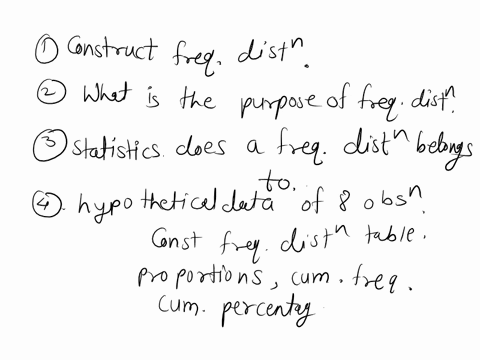 ① Construct freq. distⁿ.
② What is the purpose of freq. distⁿ.
③ Statistics does a freq. distⁿ belongs
to.
④. hypothetical data of 8 obsⁿ.
Const freq. distⁿ table.
proportions, cum. freq.
cum. percentag